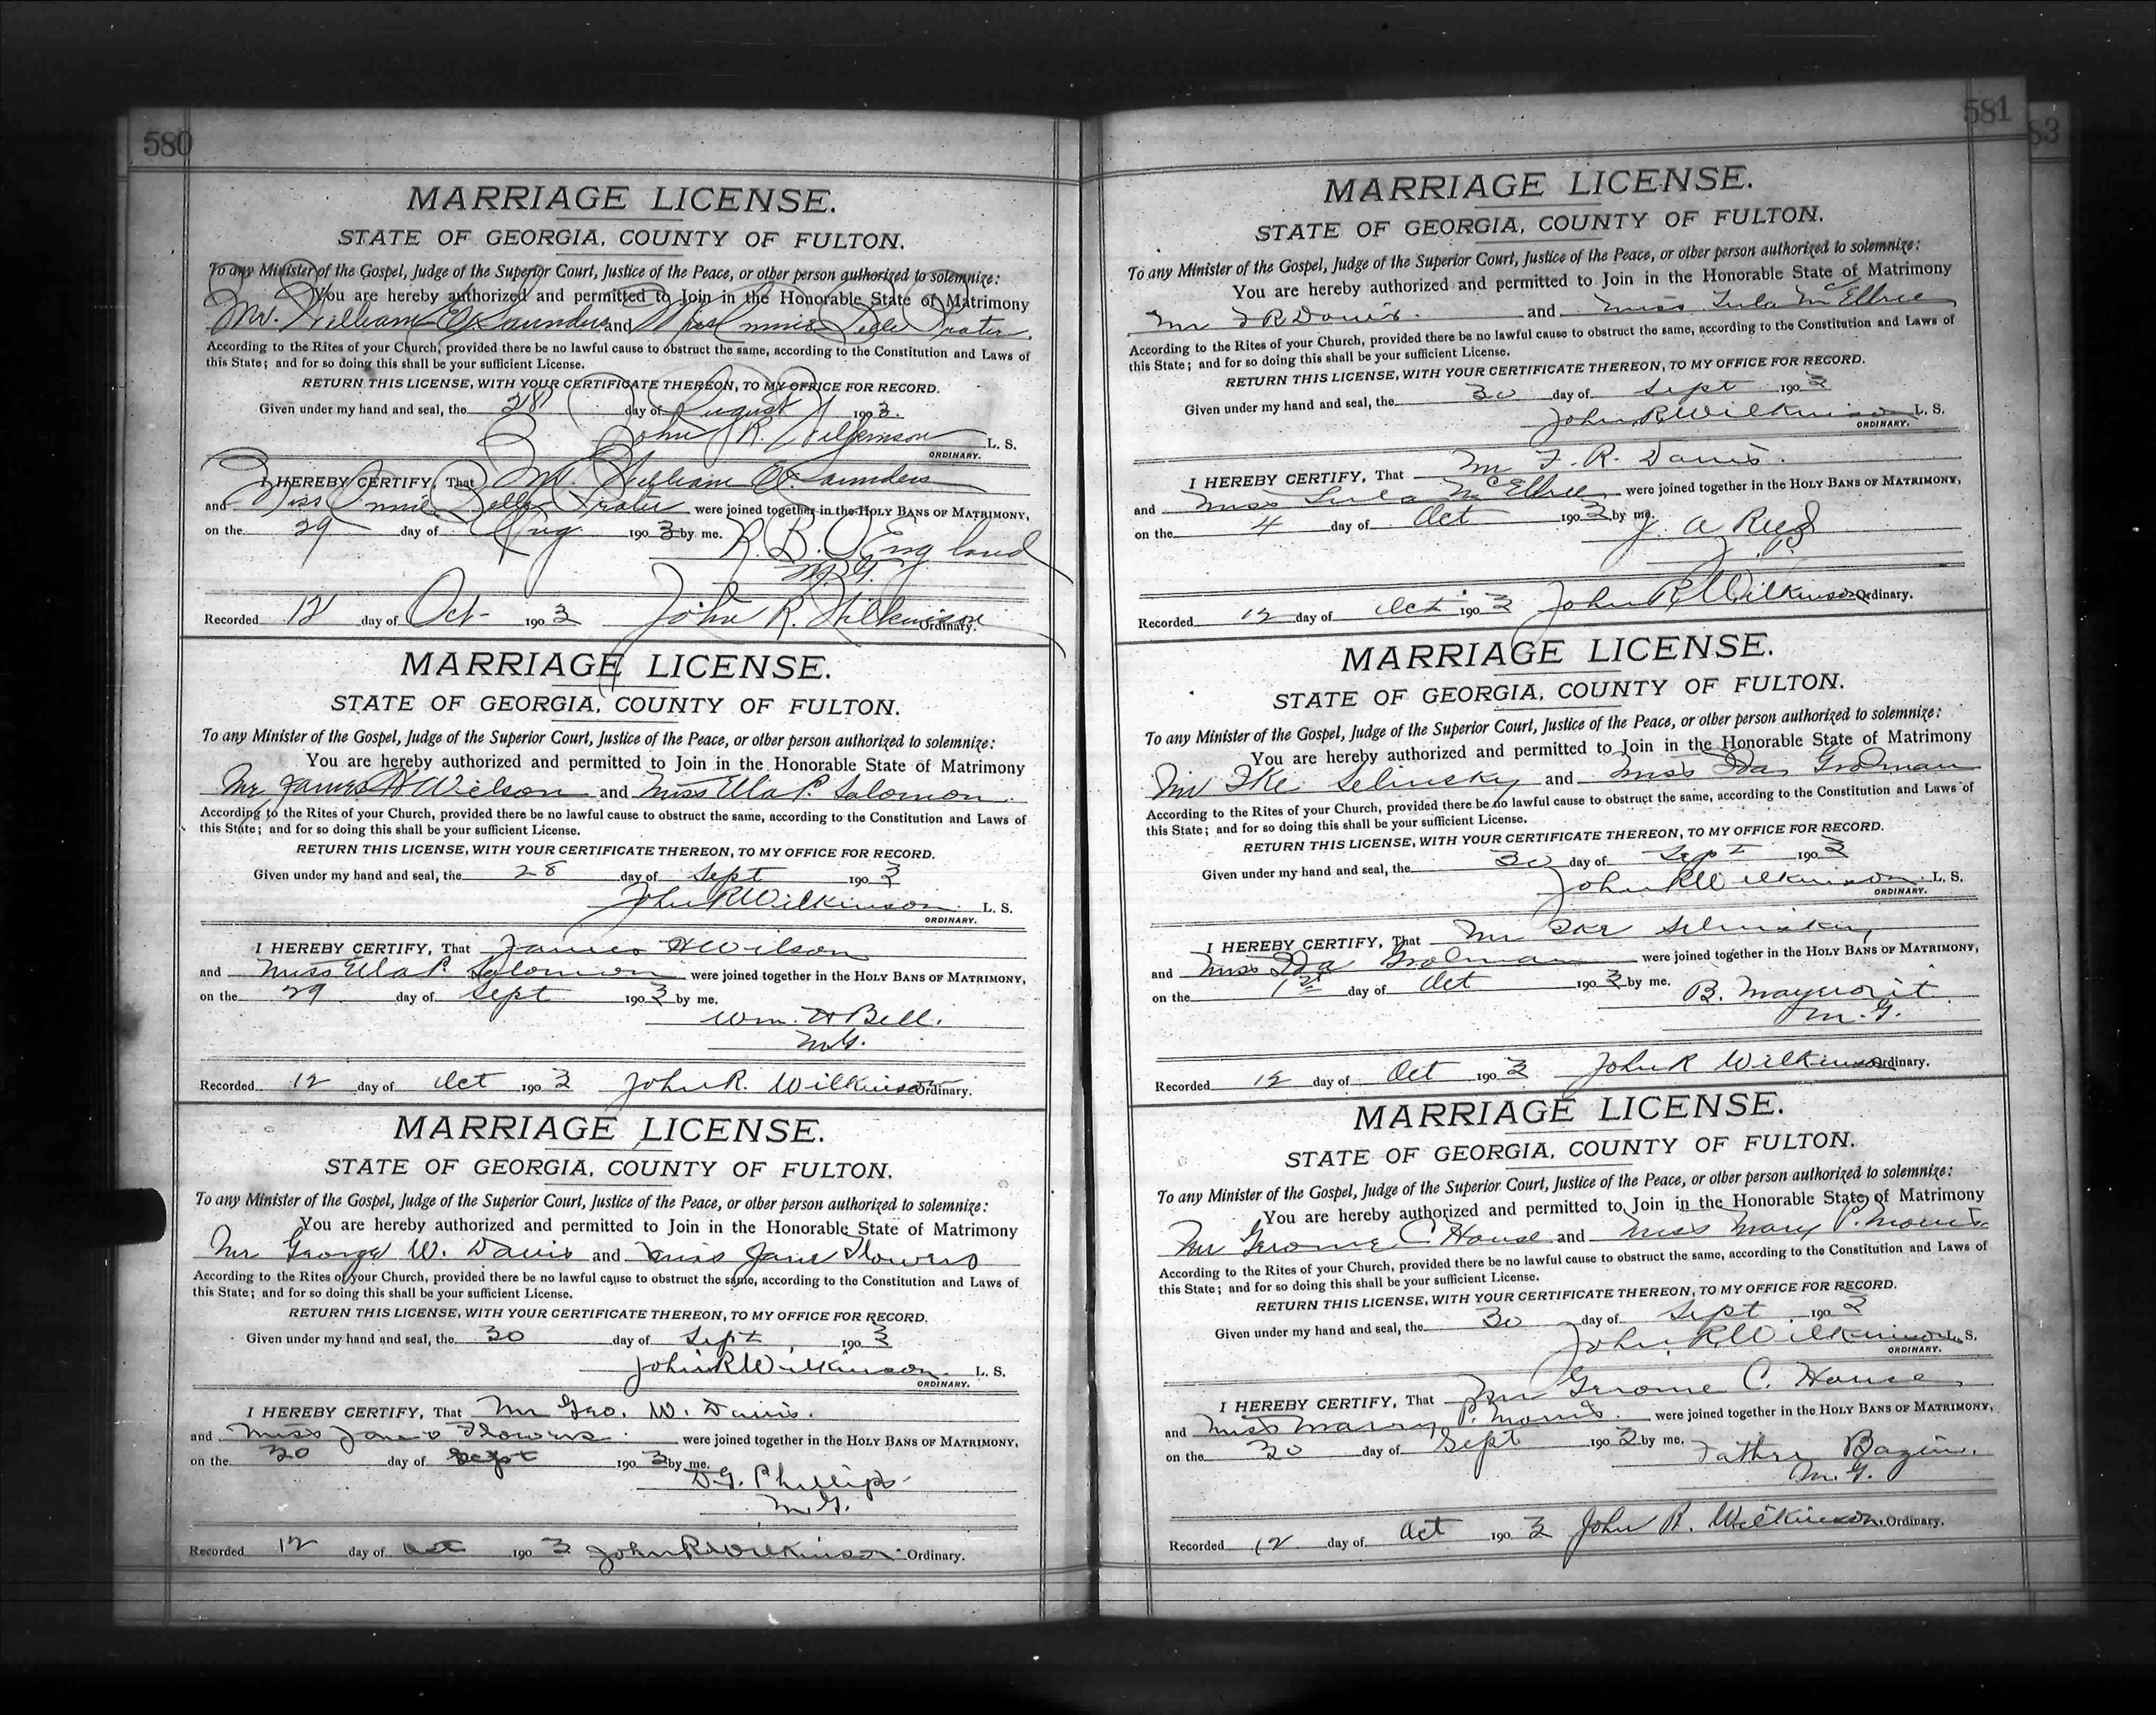 580
MARRIAGE LICENSE.
STATE OF GEORGIA, COUNTY OF FULTON.
To any Minister of the Gospel, Judge of the Superior Court, Justice of the Peace, or other person authorized to solemnize:
You are hereby authorized and permitted to Join in the Honorable State of Matrimony
Mr. William E. Saunders and Miss Belle Prater
According to the Rites of your Church, provided there be no lawful cause to obstruct the same, according to the Constitution and Laws of
this State; and for so doing this shall be your sufficient License.
RETURN THIS LICENSE, WITH YOUR CERTIFICATE THEREON, TO MY OFFICE FOR RECORD.
Given under my hand and seal, the 28 day of August 1903.
John R. Wilkinson L. S.
ORDINARY.
I HEREBY CERTIFY, That Mr. William E. Saunders
and Miss Belle Prater were joined together in the HOLY BANS OF MATRIMONY,
on the 29 day of Aug 1903 by me. R. B. O. England
M. G.
Recorded 12 day of Oct 1903 John R. Wilkinson Ordinary.
MARRIAGE LICENSE.
STATE OF GEORGIA, COUNTY OF FULTON.
To any Minister of the Gospel, Judge of the Superior Court, Justice of the Peace, or other person authorized to solemnize:
You are hereby authorized and permitted to Join in the Honorable State of Matrimony
Mr James H Wilson and Miss Ella P. Solomon.
According to the Rites of your Church, provided there be no lawful cause to obstruct the same, according to the Constitution and Laws of
this State; and for so doing this shall be your sufficient License.
RETURN THIS LICENSE, WITH YOUR CERTIFICATE THEREON, TO MY OFFICE FOR RECORD.
Given under my hand and seal, the 28 day of Sept 1903
John R Wilkinson L. S.
ORDINARY.
I HEREBY CERTIFY, That James H Wilson
and Miss Ella P. Solomon were joined together in the HOLY BANS OF MATRIMONY,
on the 29 day of Sept 1903 by me.
Wm. H Bell.
M.G.
Recorded 12 day of Oct 1903 John R. Wilkinson Ordinary.
MARRIAGE LICENSE.
STATE OF GEORGIA, COUNTY OF FULTON.
To any Minister of the Gospel, Judge of the Superior Court, Justice of the Peace, or other person authorized to solemnize:
You are hereby authorized and permitted to Join in the Honorable State of Matrimony
Mr George W. Davis and Miss Jane Flowers
According to the Rites of your Church, provided there be no lawful cause to obstruct the same, according to the Constitution and Laws of
this State; and for so doing this shall be your sufficient License.
RETURN THIS LICENSE, WITH YOUR CERTIFICATE THEREON, TO MY OFFICE FOR RECORD.
Given under my hand and seal, the 30 day of Sept 1903
John R Wilkinson L. S.
ORDINARY.
I HEREBY CERTIFY, That Mr Geo. W. Davis.
and Miss Jane Flowers were joined together in the HOLY BANS OF MATRIMONY,
on the 30 day of Sept 1903 by me.
D.G. Phillips
M.G.
Recorded 12 day of Oct 1903 John R Wilkinson Ordinary.
581
83
MARRIAGE LICENSE.
STATE OF GEORGIA, COUNTY OF FULTON.
To any Minister of the Gospel, Judge of the Superior Court, Justice of the Peace, or other person authorized to solemnize:
You are hereby authorized and permitted to Join in the Honorable State of Matrimony
Mr F R Davis. and Miss Lula McElhee
According to the Rites of your Church, provided there be no lawful cause to obstruct the same, according to the Constitution and Laws of
this State; and for so doing this shall be your sufficient License.
RETURN THIS LICENSE, WITH YOUR CERTIFICATE THEREON, TO MY OFFICE FOR RECORD.
Given under my hand and seal, the 30 day of Sept 1903
John R Wilkinson L. S.
ORDINARY.
I HEREBY CERTIFY, That Mr F. R. Davis.
and Miss Lula McElhee were joined together in the HOLY BANS OF MATRIMONY,
on the 4 day of Oct 1903 by me.
J. A
Recorded 12 day of Oct 1903 John R Wilkinson Ordinary.
MARRIAGE LICENSE.
STATE OF GEORGIA, COUNTY OF FULTON.
To any Minister of the Gospel, Judge of the Superior Court, Justice of the Peace, or other person authorized to solemnize:
You are hereby authorized and permitted to Join in the Honorable State of Matrimony
Mr Ike Selinsky and Miss Ida Grodman
According to the Rites of your Church, provided there be no lawful cause to obstruct the same, according to the Constitution and Laws of
this State; and for so doing this shall be your sufficient License.
RETURN THIS LICENSE, WITH YOUR CERTIFICATE THEREON, TO MY OFFICE FOR RECORD.
Given under my hand and seal, the 30 day of Sept 1903
John R Wilkinson L. S.
ORDINARY.
I HEREBY CERTIFY, That Mr Ike Selinsky
and Miss Ida Grodman were joined together in the HOLY BANS OF MATRIMONY,
on the 1st day of Oct 1903 by me. B. Mayerovit
M.G.
Recorded 12 day of Oct 1903 John R Wilkinson Ordinary.
MARRIAGE LICENSE.
STATE OF GEORGIA, COUNTY OF FULTON.
To any Minister of the Gospel, Judge of the Superior Court, Justice of the Peace, or other person authorized to solemnize:
You are hereby authorized and permitted to Join in the Honorable State of Matrimony
Mr Gerome C House and Miss Mary P. Morris
According to the Rites of your Church, provided there be no lawful cause to obstruct the same, according to the Constitution and Laws of
this State; and for so doing this shall be your sufficient License.
RETURN THIS LICENSE, WITH YOUR CERTIFICATE THEREON, TO MY OFFICE FOR RECORD.
Given under my hand and seal, the 30 day of Sept 1903
John R Wilkinson L. S.
ORDINARY.
I HEREBY CERTIFY, That Mr Gerome C. House
and Miss Marry P. Morris. were joined together in the HOLY BANS OF MATRIMONY,
on the 30 day of Sept 1903 by me. Father Bazin.
M.G.
Recorded 12 day of Oct 1903 John R. Wilkinson Ordinary.